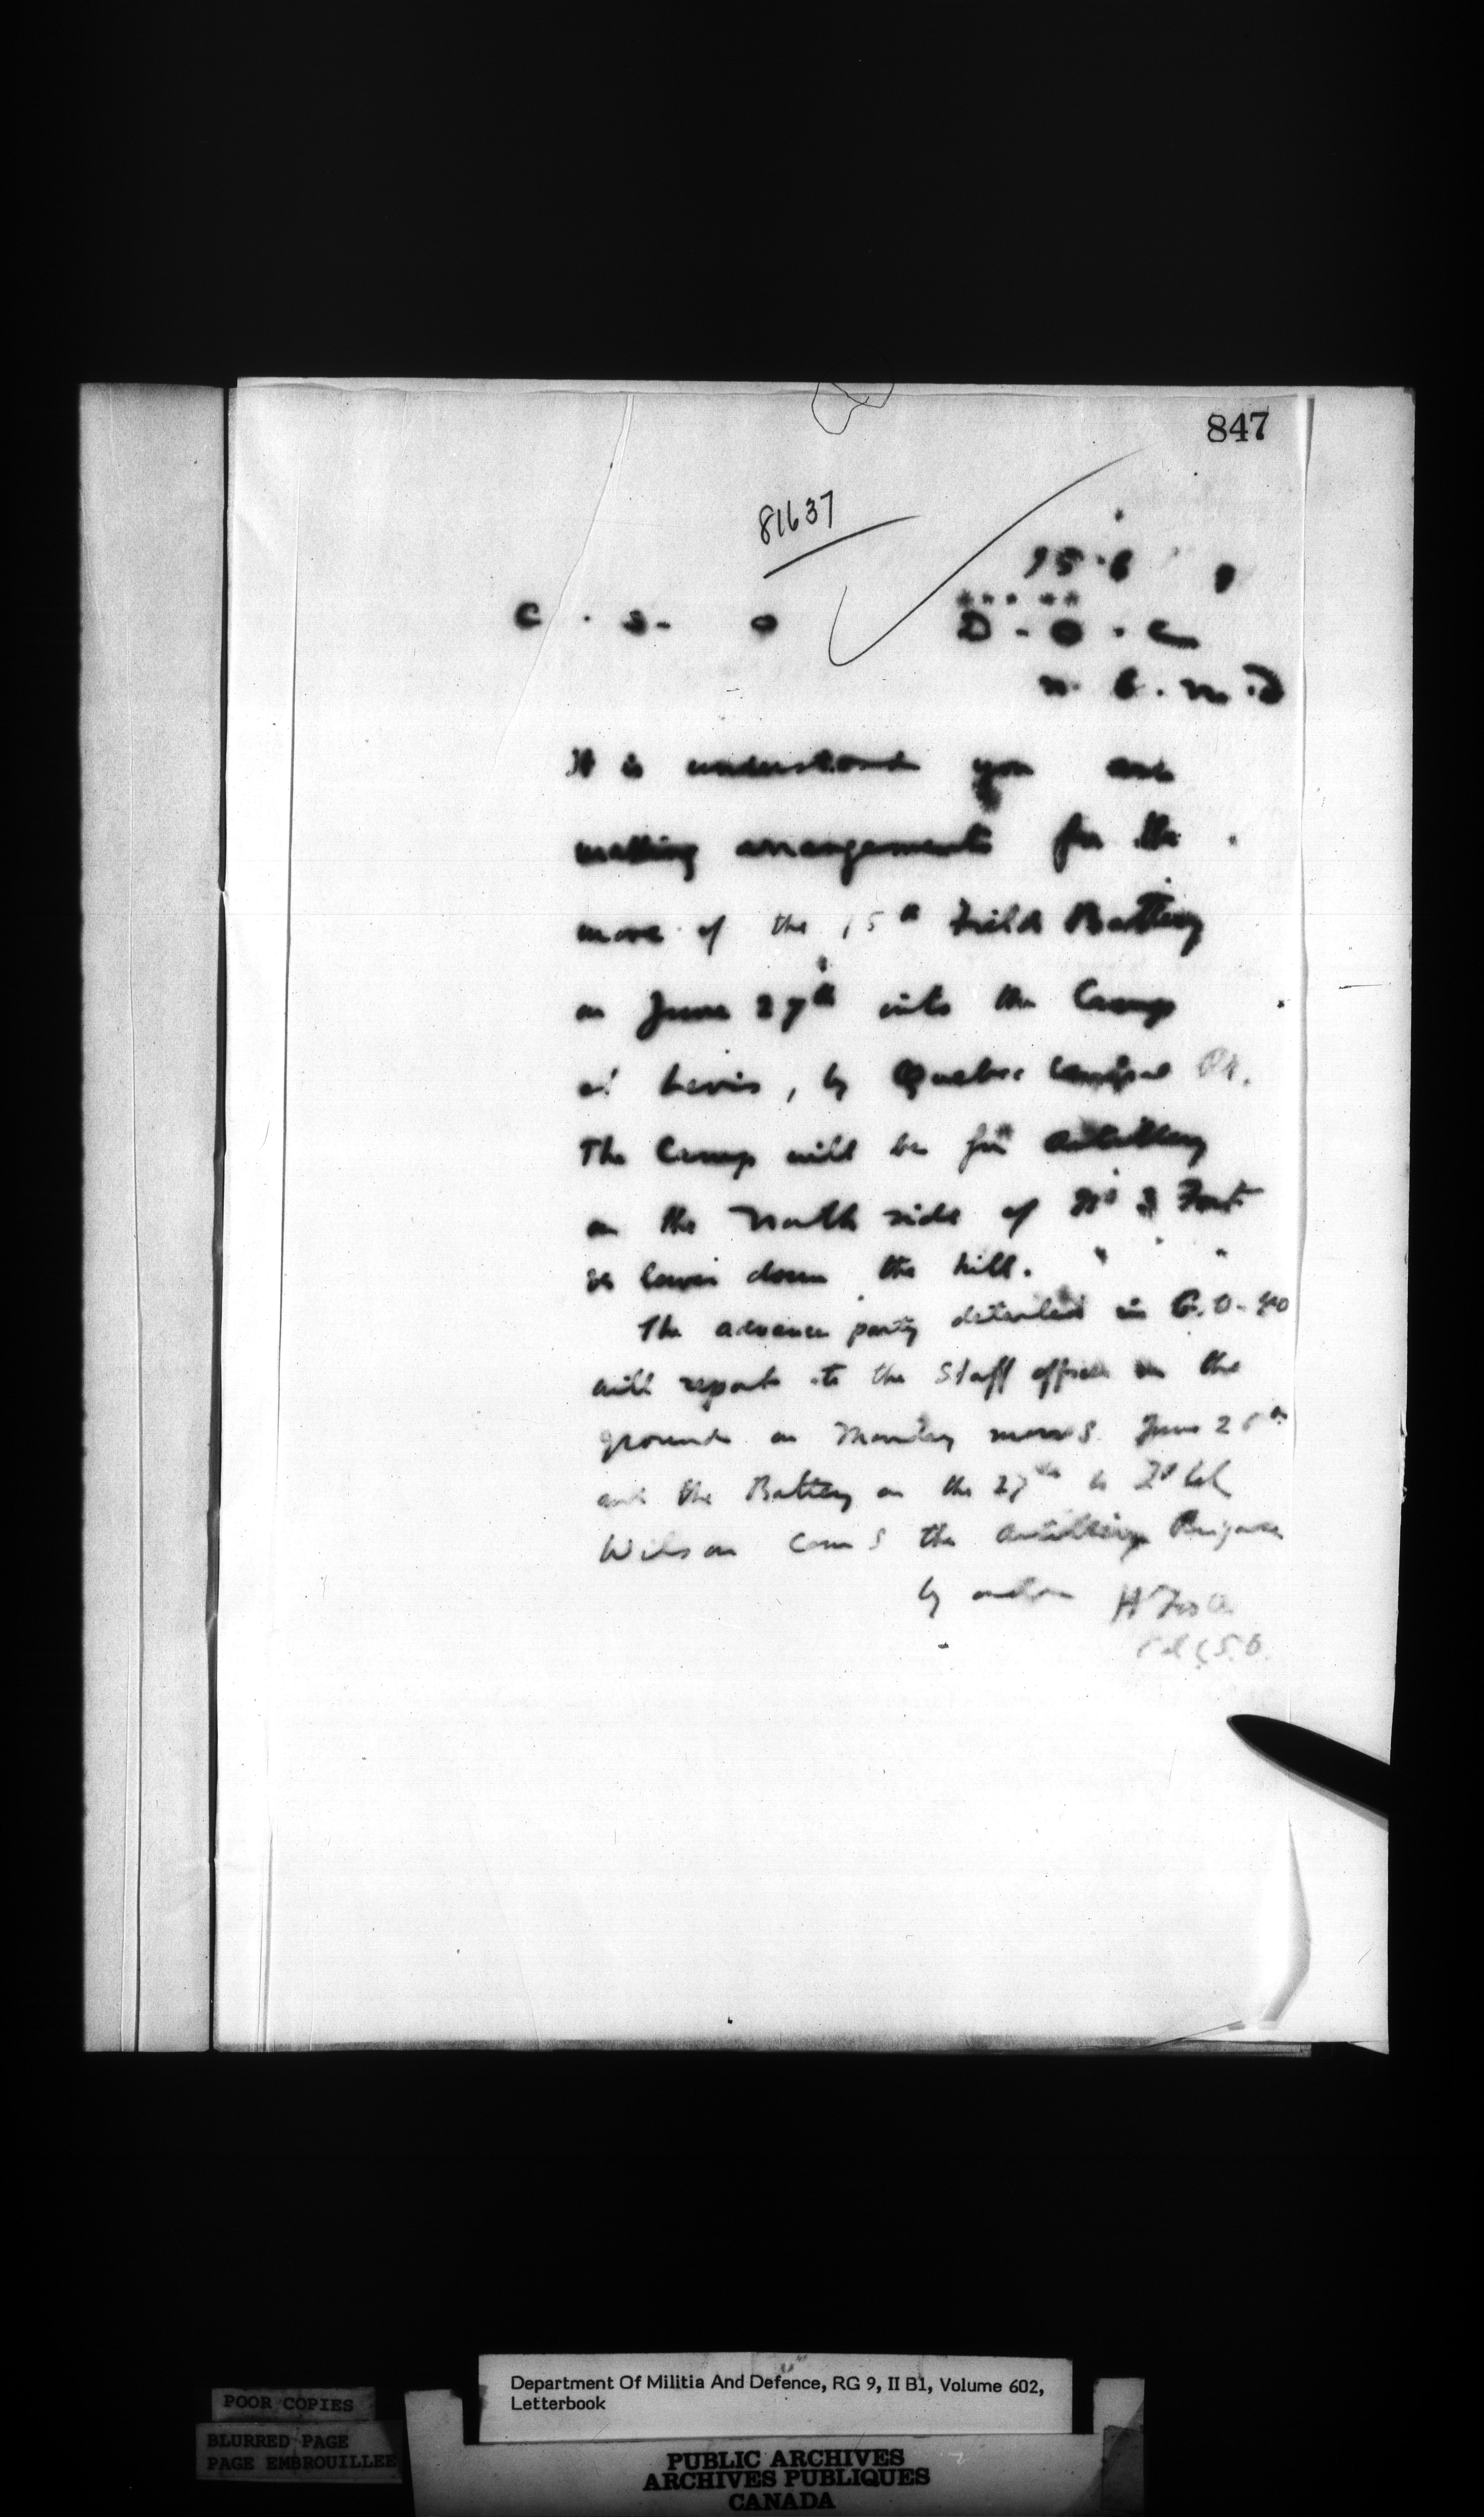 847
81637
C. S. O
D. O. C
It is understood you are
making arrangements for the
move of the 15th Field Battery
on June 27th into the Camp
at Levis, by Quebec Central Ry.
The Camp will be for Artillery
on the North side of No 3 Fort
lower down the hill.
The advance party detailed in G.O.
will report to the Staff officer on the
ground on Monday June
and the Battery on the 27th to
Wilson the Artillery Brigade
by order
C.S.O.
Department Of Militia And Defence, RG 9, II B1, Volume 602,
Letterbook
POOR COPIES
BLURRED PAGE
PAGE EMBROUILLEE
PUBLIC ARCHIVES
ARCHIVES PUBLIQUES
CANADA